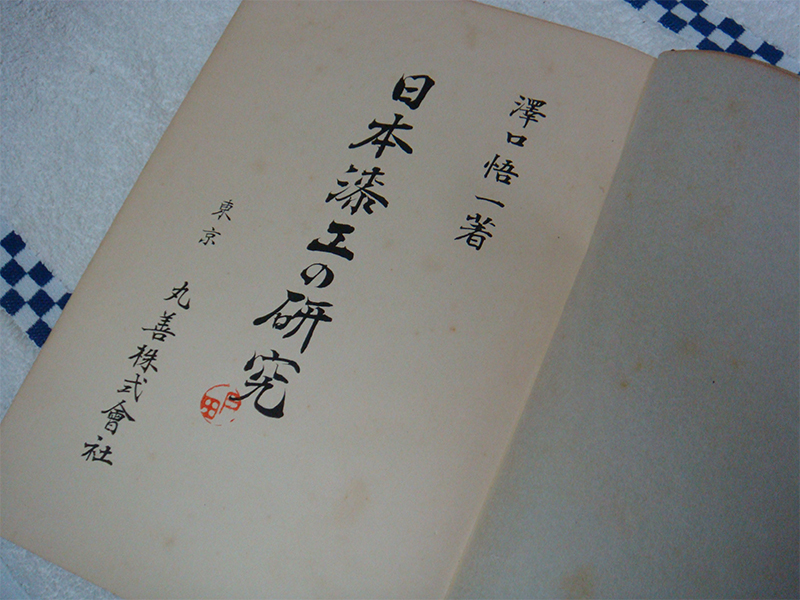 澤口悟一著
日本漆工の研究
東京 丸善株式會社
戸田